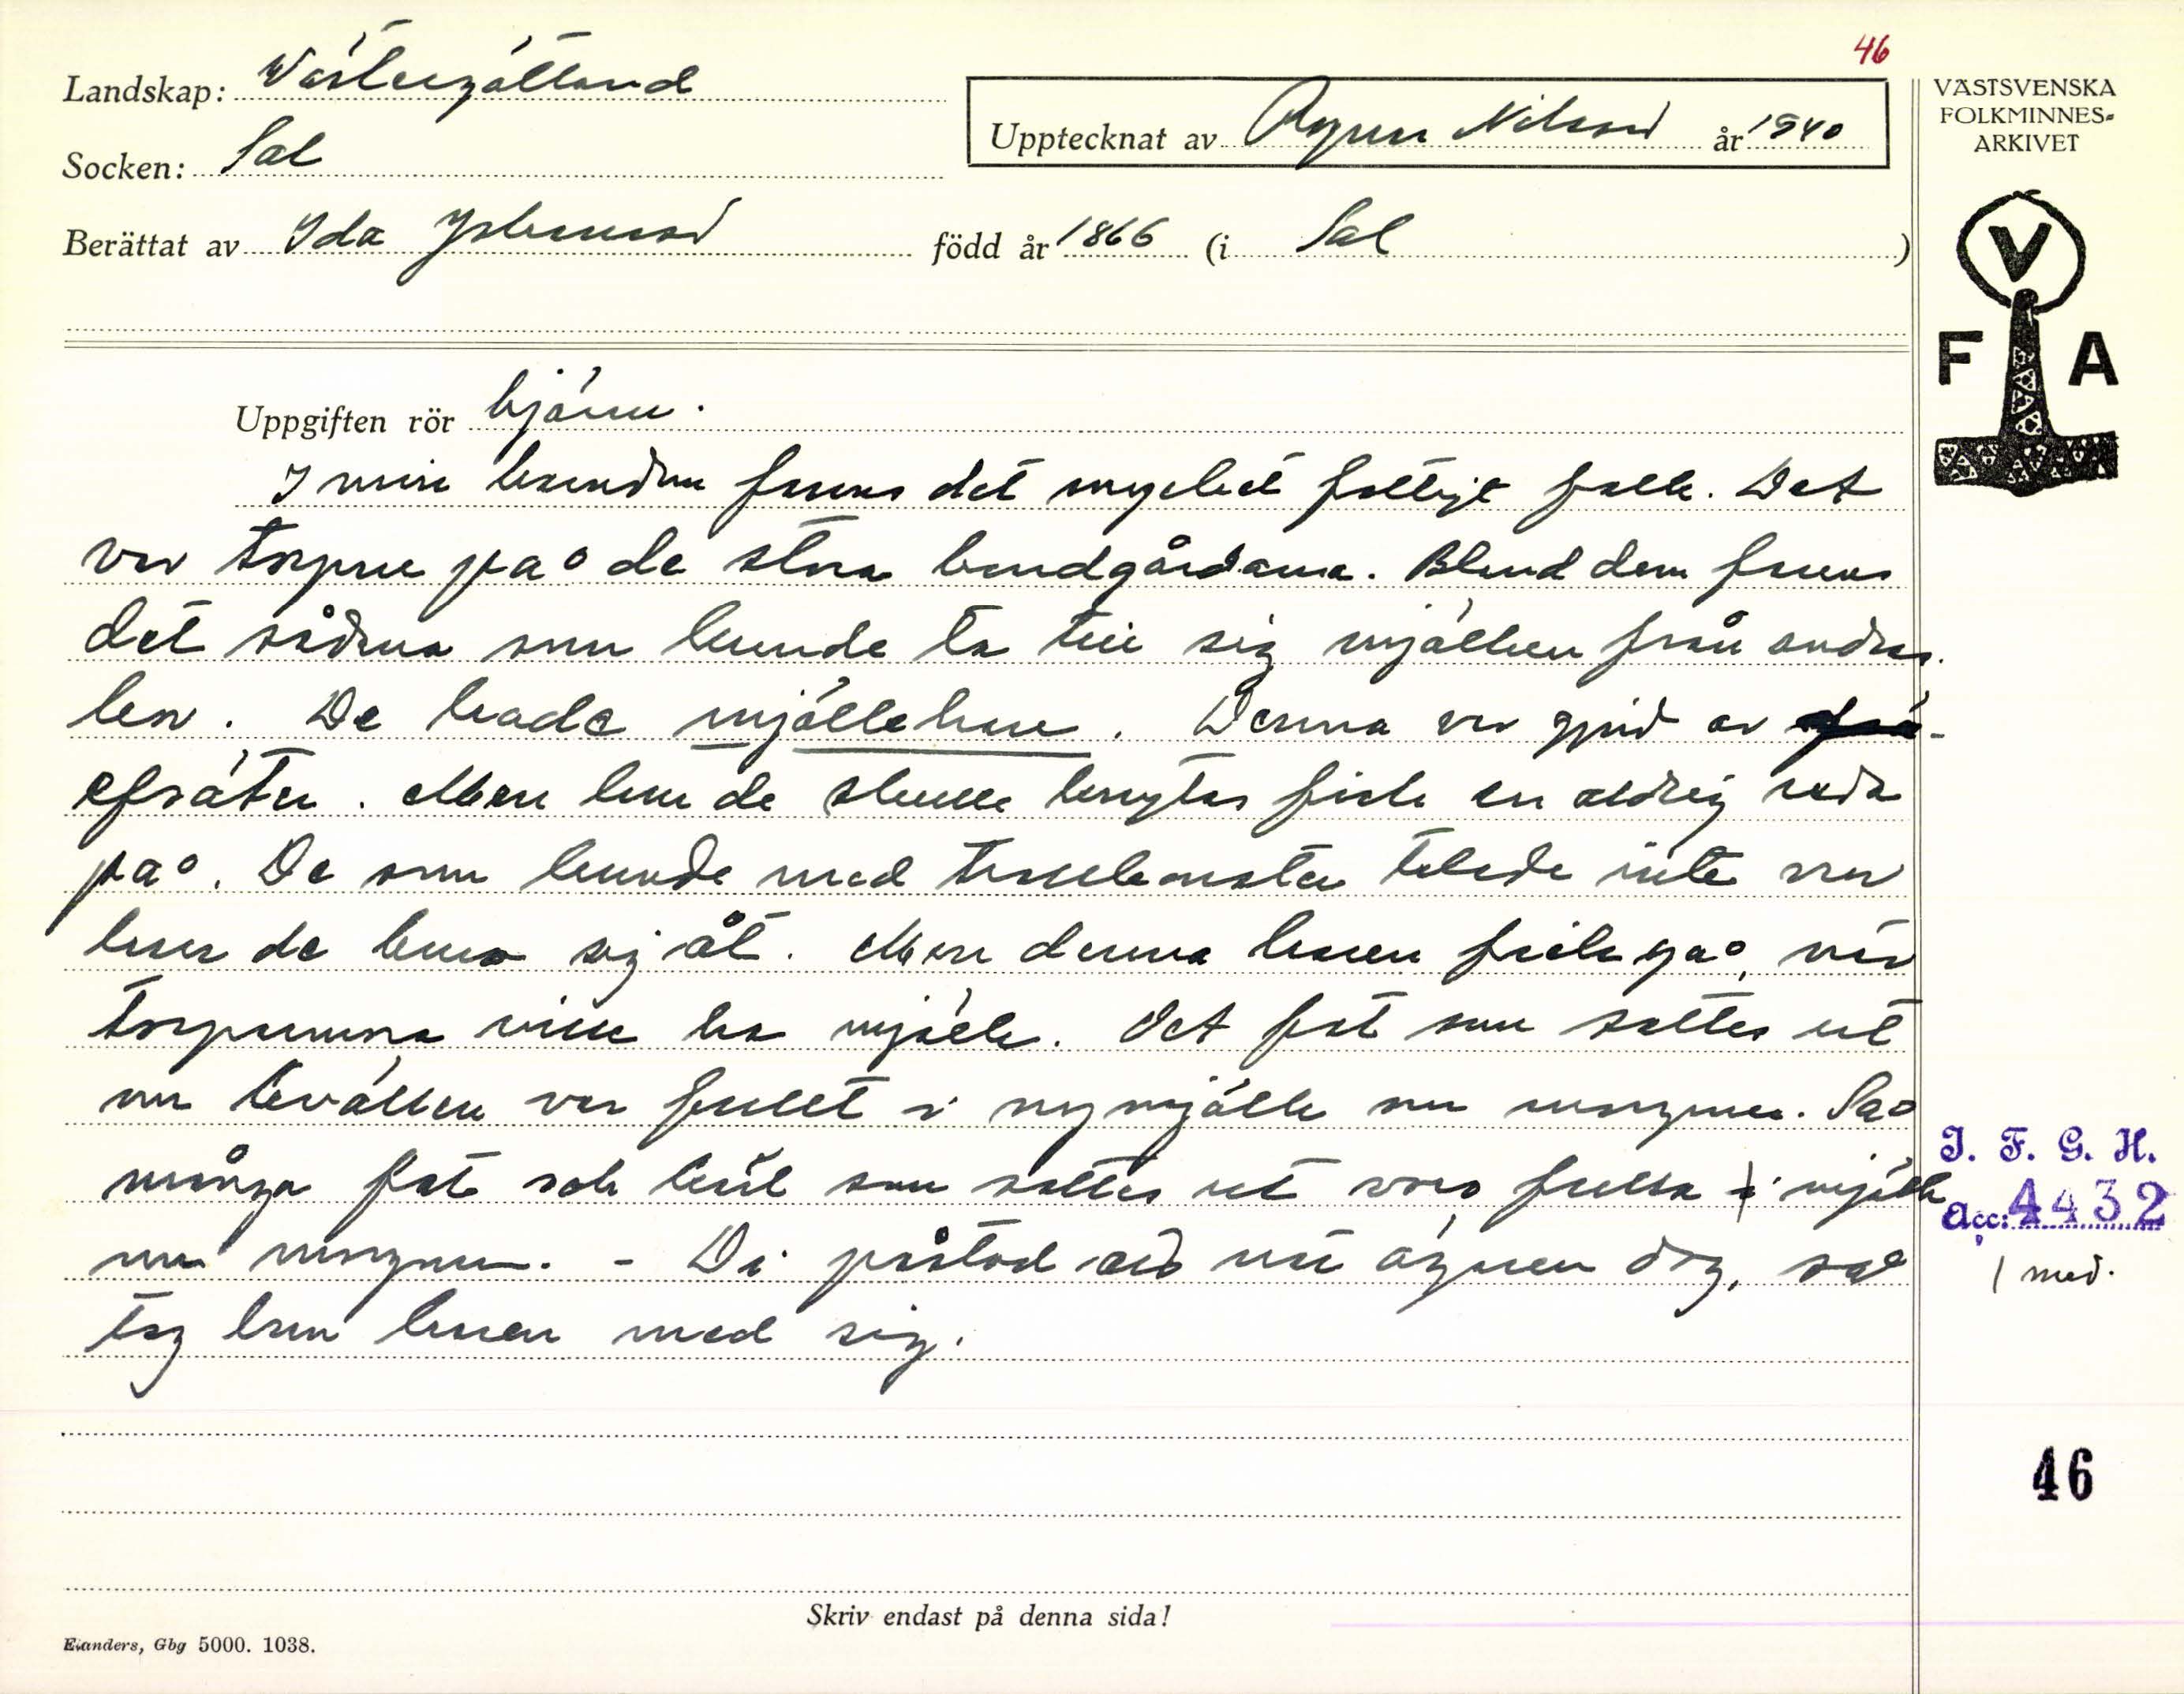 46
Landskap: Västergötland
Upptecknat av Ragnar Nilsson år 1940
VÄSTSVENSKA
FOLKMINNES-
ARKIVET
Socken: Sal
Berättat av Ida Johansson född år 1866 (i Sal )
V
F A
Uppgiften rör bjäran.
I min barndom fanns det mycket fattigt folk. Det
var torpare på de stora bondgårdarna. Bland dem fanns
det sådana som kunde ta till sig mjölken från andras
kor. De hade mjölkhare. Denna var gjord av
efsåter. Men hur de skulle benytas fick en aldrig reda
på. De som kunde med trollkonster talade inte om
hur de buro sig åt. Men denna haren fick gå, när
torparna ville ha mjölk. Det fat som sattes ut
om kvällen var fullet i nymjölk om morgonen. Så
många fat och kärl som sattes ut voro fulla i mjölk
om morgonen. - Di påstod att när ägaren dog, så
tog han haren med sig.
I. F. G. H.
Acc: 4432
1 med.
46
Skriv endast på denna sida!
Elanders, Gbg 5000. 1038.